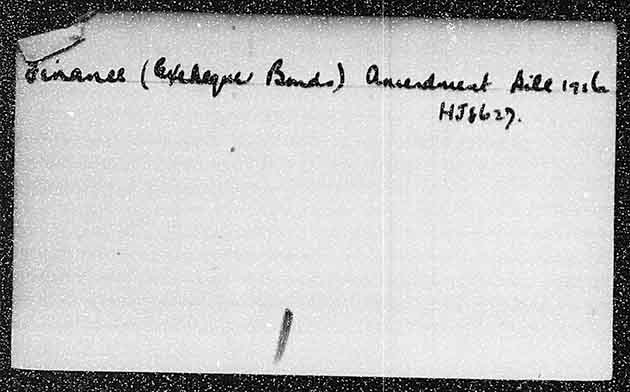 Finance (Exchequer Bonds) Amendment Bill 1916
HJ8627.